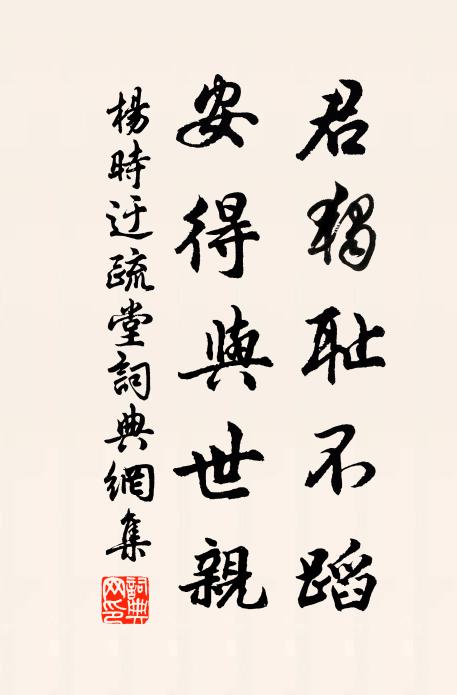 君獨耻不蹈
安得與世親
楊時迂疏堂詞典網集
詞典網印